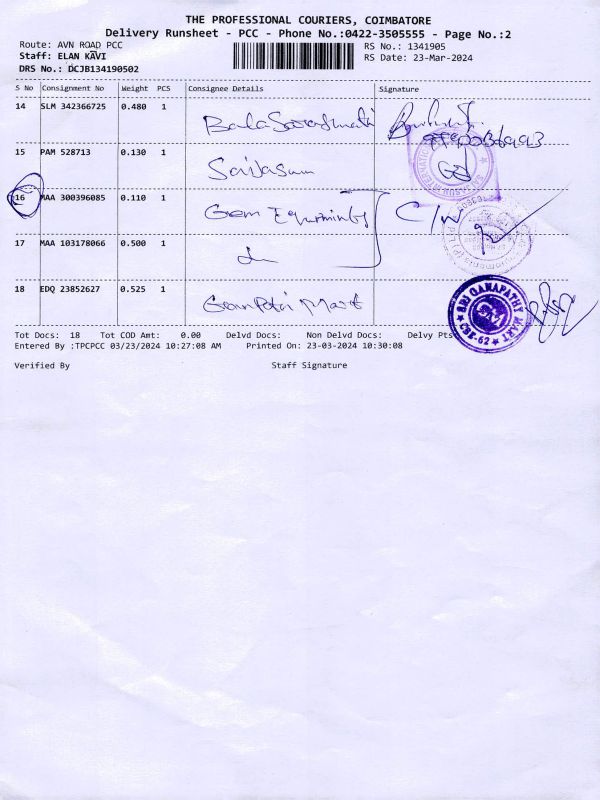 THE PROFESSIONAL COURIERS, COIMBATORE
Delivery Runsheet - PCC - Phone No.:0422-3505555 - Page No.:2
Route: AVN ROAD PCC
RS No.: 1341905
Staff: ELAN KAVI
RS Date: 23-Mar-2024
DRS No.: DCJB134190502
S No Consignment No Weight PCS Consignee Details Signature
14 SLM 342366725 0.480 1 Bala Saraswathi
15 PAM 528713 0.130 1
16 MAA 300396085 0.110 1 Gem Equipments
17 MAA 103178066 0.500 1
18 EDQ 23852627 0.525 1 Ganapati Mart
SRI GANAPATHY MART
CBE-62
Tot Docs: 18 Tot COD Amt: 0.00 Delvd Docs: Non Delvd Docs: Delvy Pts
Entered By :TPCPCC 03/23/2024 10:27:08 AM Printed On: 23-03-2024 10:30:08
Verified By Staff Signature